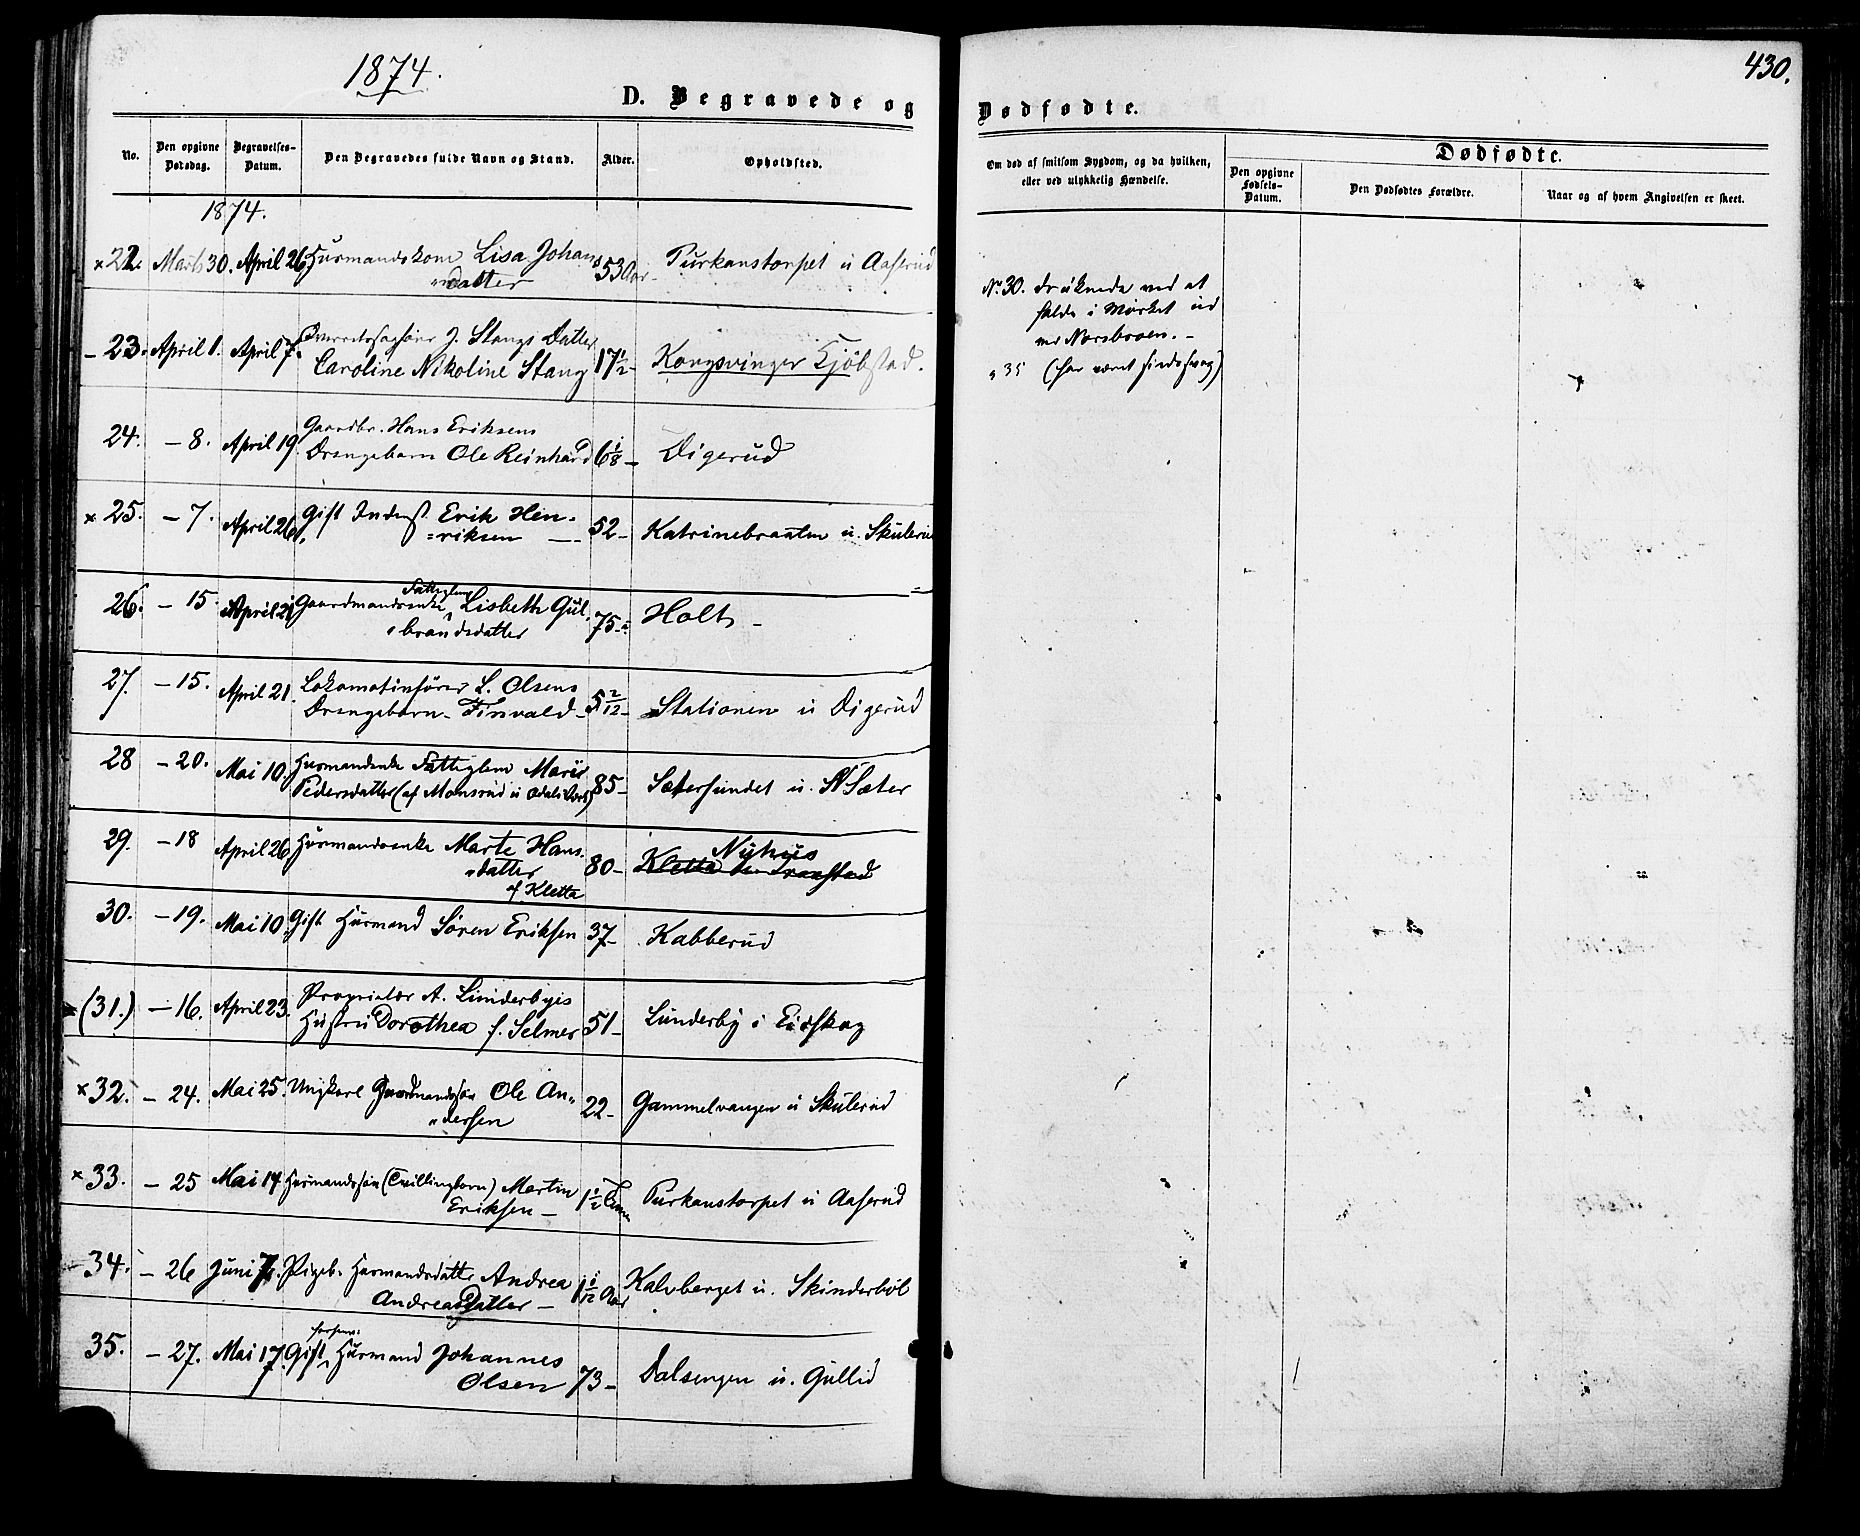 1874.
D. Begravede og
No.
Den opgivne Dødsdag.
Begravelses-Datum.
Den Begravedes fulde Navn og Stand.
Alder.
Opholdssted.
1874.
×22. Marts 30. April 26 Huusmandskone Lisa Johans
datter 53 Aar Purkanstorpet u Aaserud
23. April 1. April 7. Overretssagfører J. Stangs Datter
Caroline Nikoline Stang 17 1/2 Kongsvinger Kjöbstad.
24. – 8. April 19. Gaardbr. Hans Eriksens
Drengebarn Ole Reinhard 6 1/8 – Digerud
× 25. – 7. April 26. Gift Inderst Erik Hen=
=riksen 52 – Katrinebraaten u. Skulerud
26. – 15. April 21 Gaardmandsenke Fattiglem Lisbeth Gul
brandsdatter 75 – Holt –
27. – 15. April 21. Lokomotivfører L. Olsens
Drengebarn – Finvald – 5 2/12 – Stationen u Digerud
28 – 20. Mai 10. Husmandsenke Fattiglem Marie
Pedersdatter (af Monsrud u Odals Værk) 85 – Sætersundet u. N Sæter
29. – 18 April 26 Husmandsenke Marte Hans
datter 80 – Nyhus
af Kletta
30. – 19. Mai 10. Gift Husmand Søren Eriksen 37 – Kabberud
(31.) – 16. April 23. Proprietær A. Lunderbyes
Hustru Dorothea f. Selmer 51 – Lunderby i Eidskog
×32. – 24. Mai 25. Ungkarl Gaardmandssøn Ole An„
„dersen 22 – Gammelvangen u Skulerud
×33. – 25 Mai 14 Husmandssøn (Tvillingbarn) Martin
Eriksen – 1 1/2 Time Purkanstorpet u Aaserud
34. – 26 Juni 7. Pigeb. Husmandsdatter Andrea
AndreasDatter – 1 1/12 Aar Kalvberget u. Skinderböl
35. – 27. Mai 17. Gift forhenv: Husmand Johannes
Olsen 73 – Dalsengen u. Gullid
430.
Dødfødte.
Om død af smitsom Sygdom, og da hvilken,
eller ved ulykkelig Hændelse.
Dødfødte.
Den opgivne Fødsels-Datum.
Den Dødfødtes Forældre.
Naar og af hvem Angivelsen er skeet.
No 30. druknede ved at
falde i Mörket ud
ved Norsbroen. –
" 35 (har været sindssvag)